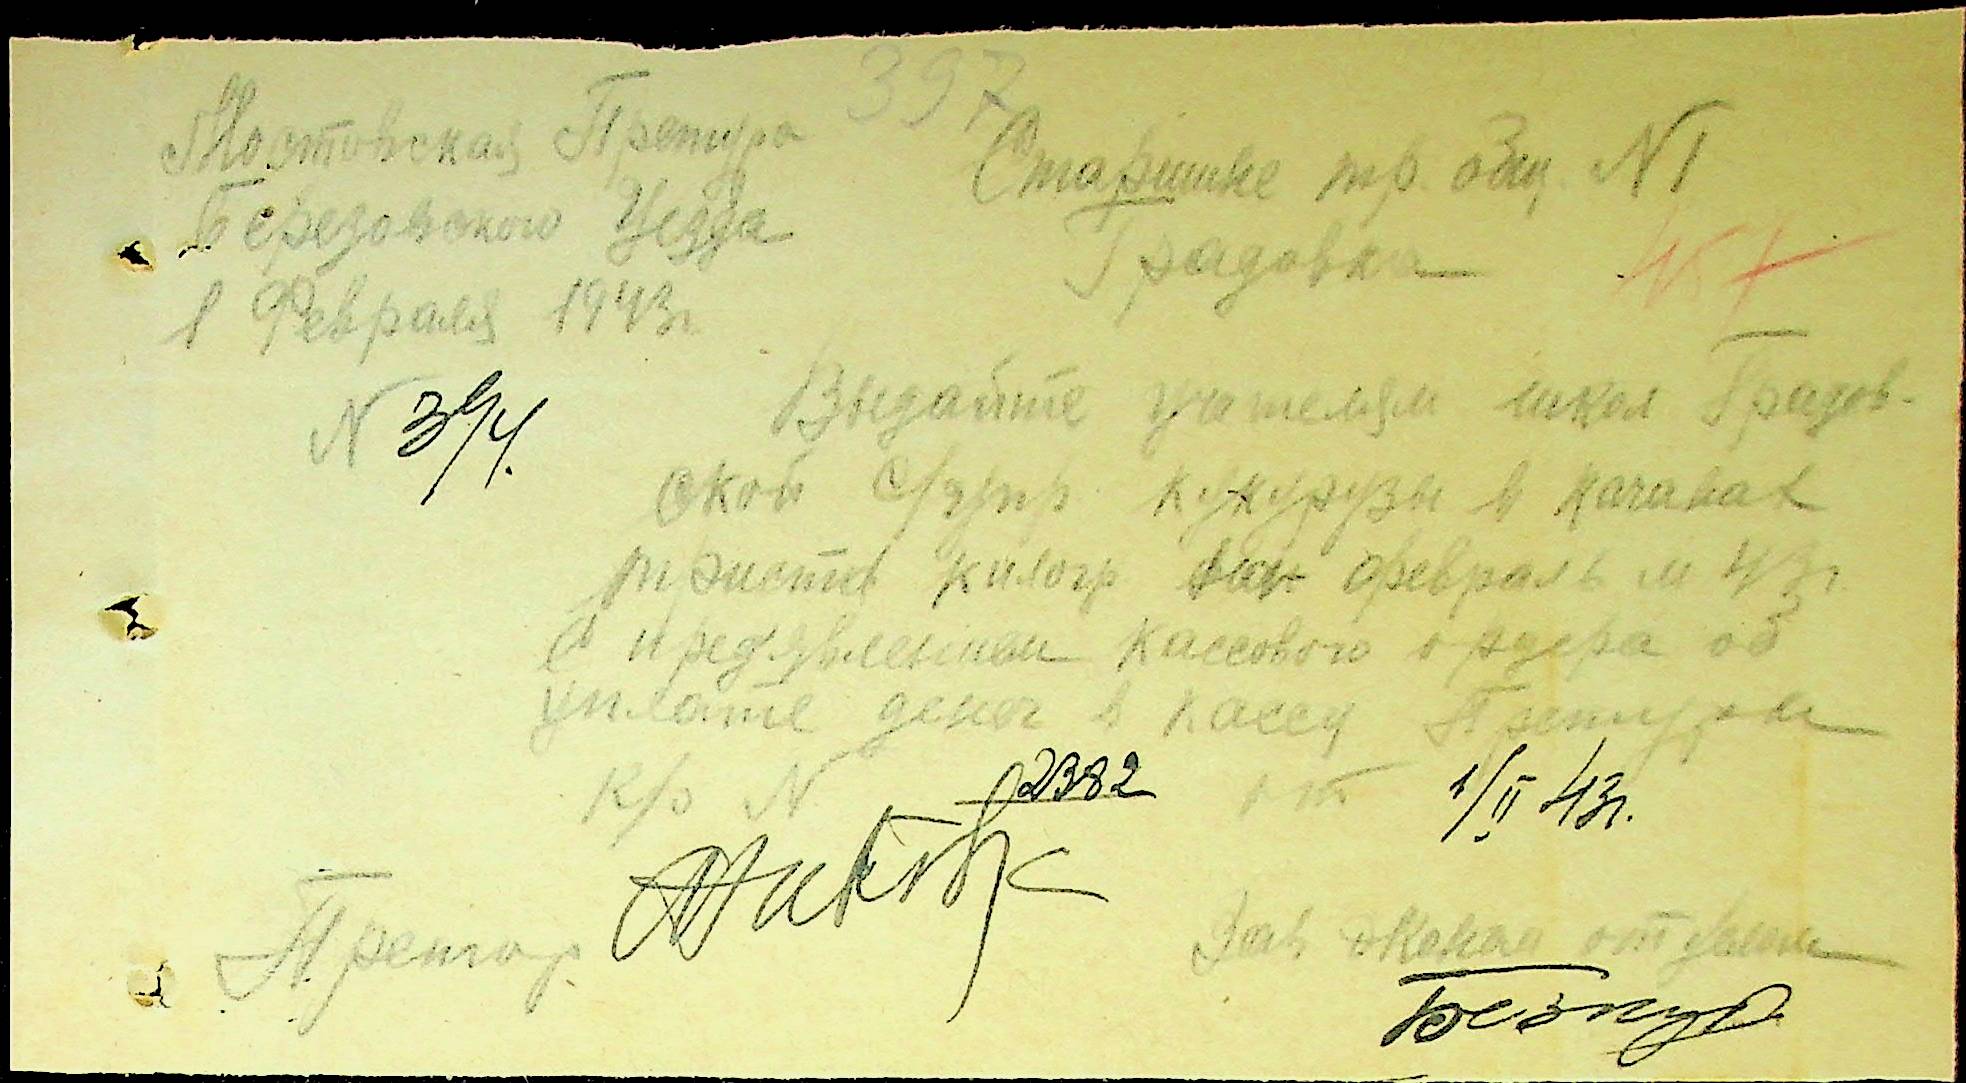 397
Мостовская Претура
Березовского Уезда
1 Февраля 1943г.
N 39/4.
Старшине тр. общ. N1
Градовка
Выдайте учителям школ Градов-
ской кукурузы в початках
триста килогр за февраль м 43г.
С предъявлением кассового ордера об
уплате денег в кассу Претуры
к/о N 2382 от 1/II 43г.
Претор
Зав Эконом отделом